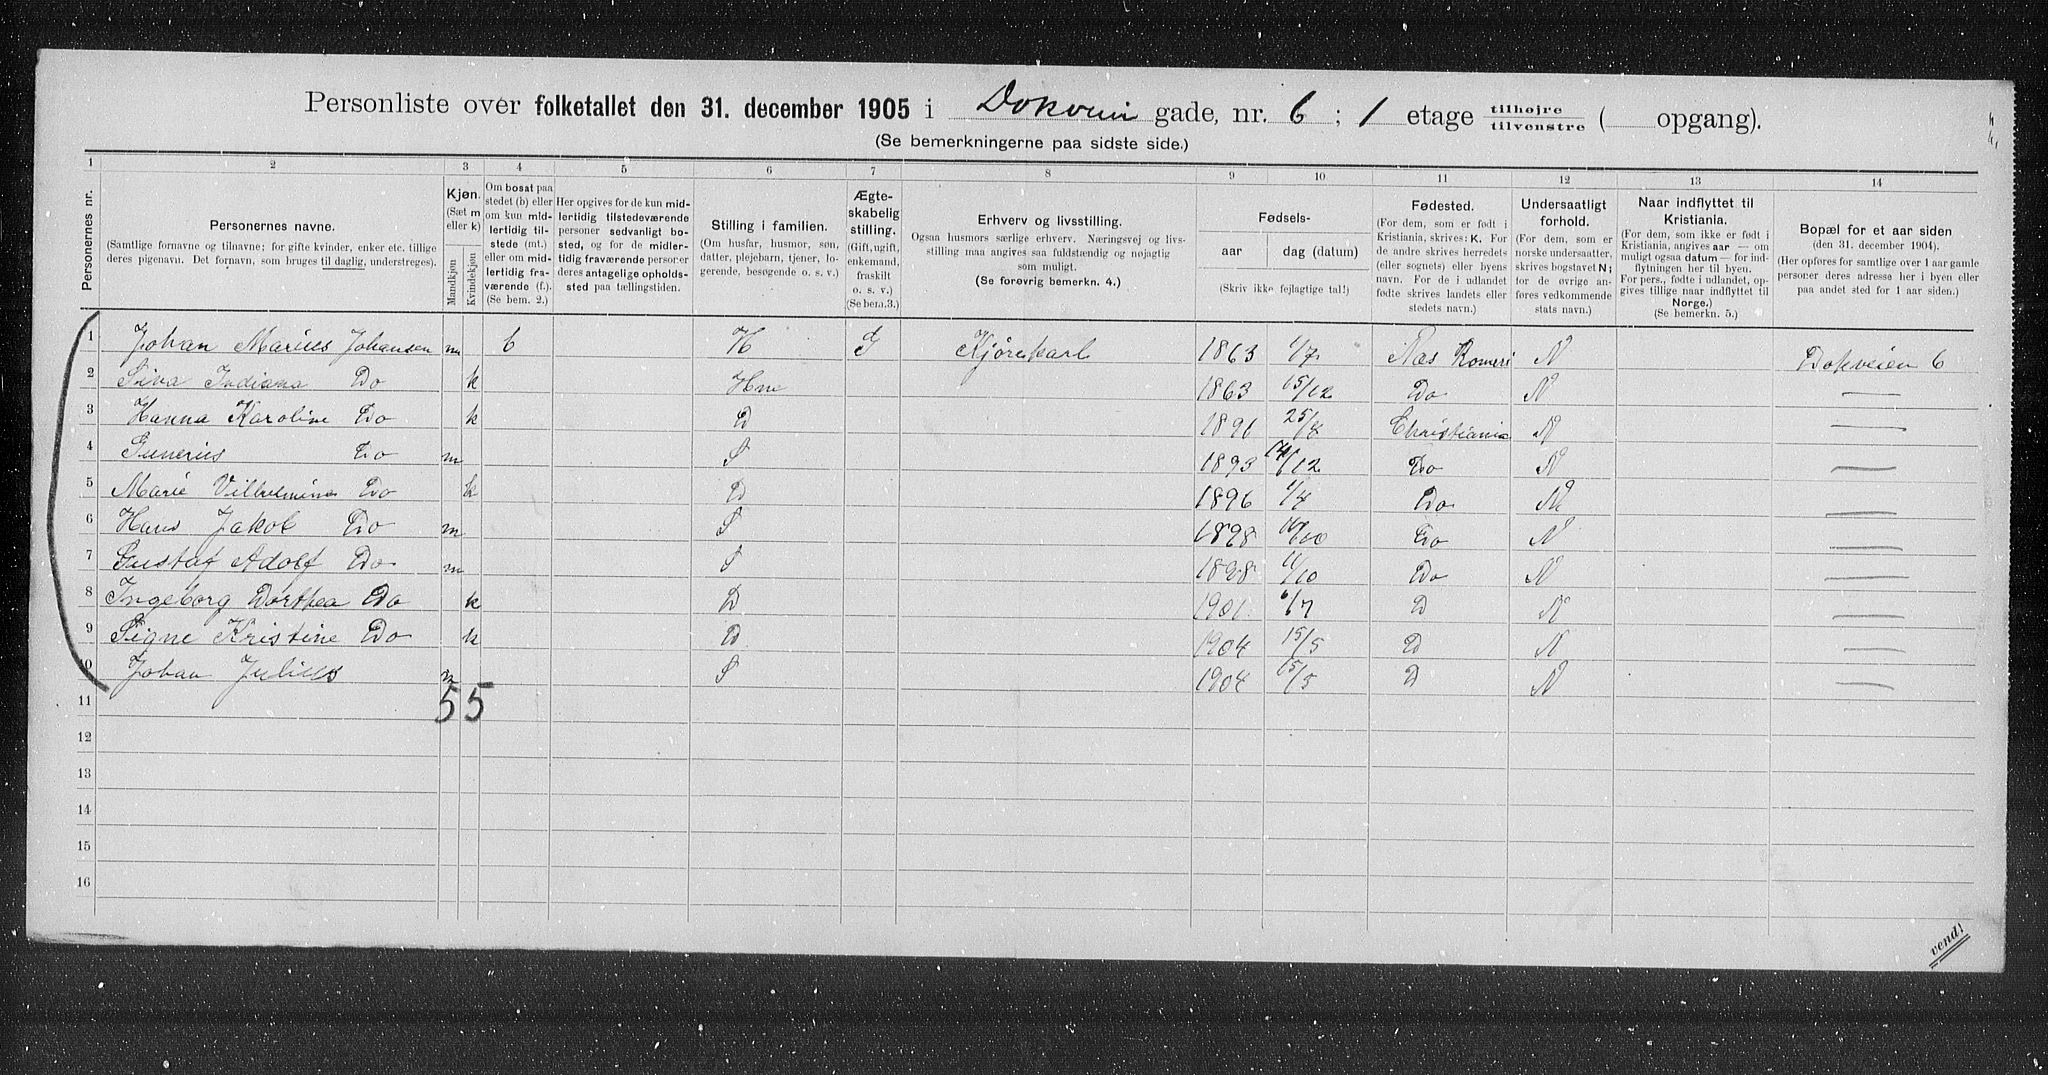 Personliste over folketallet den 31. december 1905 i Dokveien gade, nr. 6 ; 1 etage tilhøjre / tilvenstre ( opgang).
(Se bemerkningerne paa sidste side.)
1 2 3 4 5 6 7 8 9 10 11 12 13 14
Personernes nr.
Personernes navne.
(Samtlige fornavne og tilnavne; for gifte kvinder, enker etc. tillige deres pigenavn. Det fornavn, som bruges til daglig, understreges).
Kjøn.
(Sæt m eller k)
Mandkjøn
Kvindekjøn
Om bosat paa stedet (b) eller om kun midlertidig tilstede (mt.) eller om midlertidig fraværende (f.). (Se bem. 2.)
Her opgives for de kun midlertidig tilstedeværende personer sedvanligt bosted, og for de midlertidig fraværende personer deres antagelige opholdssted paa tællingstiden.
Stilling i familien.
(Om husfar, husmor, søn, datter, plejebarn, tjener, logerende, besøgende o. s. v.)
Ægteskabelig stilling.
(Gift, ugift, enkemand, fraskilt o. s. v.)
(Se bem.3.)
Erhverv og livsstilling.
Ogsaa husmors særlige erhverv. Næringsvej og livsstilling maa angives saa fuldstændig og nøjagtig som muligt.
(Se forøvrig bemerkn. 4.)
Fødsels-
aar
dag (datum)
(Skriv ikke fejlagtige tal!)
Fødested.
(For dem, som er født i Kristiania, skrives: K. For de andre skrives herredets (eller sognets) eller byens navn. For de i udlandet fødte skrives landets eller stedets navn.)
Undersaatligt forhold.
(For dem, som er norske undersaatter, skrives bogstavet N; for de øvrige angives vedkommende stats navn.)
Naar indflyttet til Kristiania.
(For dem, som ikke er født i Kristiania, angives aar — om muligt ogsaa datum — for indflytningen her til byen. For pers., fødte i udlandet, opgives tillige naar indflyttet til Norge.)
(Se bemerkn. 5.)
Bopæl for et aar siden
(den 31. december 1904).
(Her opføres for samtlige over 1 aar gamle personer deres adresse her i byen eller paa andet sted for 1 aar siden.)
1 Johan Marius Johansen m b H G Kjørekarl 1863 1/7 Næs Romeri N Dokveien 6
2 Indiana Do k Hm 1863 15/12 Do N —
3 Hanna Karoline Do k D 1891 25/8 Christiania N —
4 Gunerius Do m S 1893 14/12 Do N —
5 Marie Vilhelmine Do k D 1896 1/4 Do N —
6 Hans Jakob Do m S 1898 Do N —
7 Gustaf Adolf Do m S 1898 11/10 Do N —
8 Ingeborg Dorthea Do k D 1901 6/7 D N —
9 Signe Kristine Do k D 1904 15/5 D N —
10 Johan Julius m S 1904 15/5 D N —
11 5 5
12
13
14
15
16
vend!